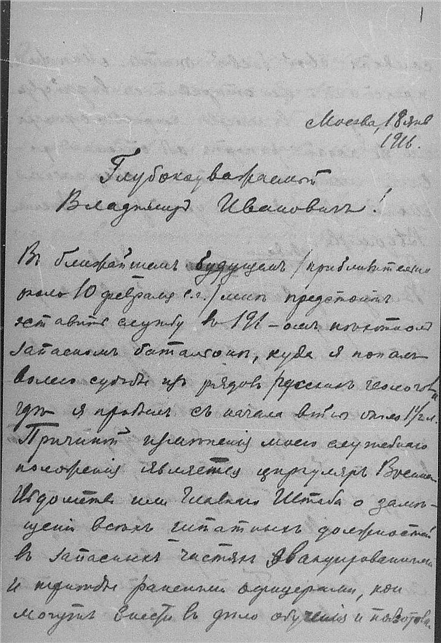 1
Москва, 18 янв
1916.
Глубокоуважаемый
Владимиръ Ивановичъ!
Въ ближайшемъ будущемъ /приблизительно
около 10 февраля с.г./ мнѣ предстоитъ
оставить службу въ 191-омъ пѣхотномъ
запасномъ баталіонѣ, куда я попалъ
волею судьбы изъ рядовъ русскихъ геологовъ и
гдѣ я пробылъ съ начала войны около 1½ г.
Причиной измѣненія моего служебнаго
положенія является циркуляръ Военнаго
Вѣдомства или Главнаго Штаба о замѣ-
щеніи всѣхъ штатныхъ должностей
въ запасныхъ частяхъ эвакуированными
и трижды ранеными офицерами, кои
могутъ внести въ дѣло обученія и подготовки